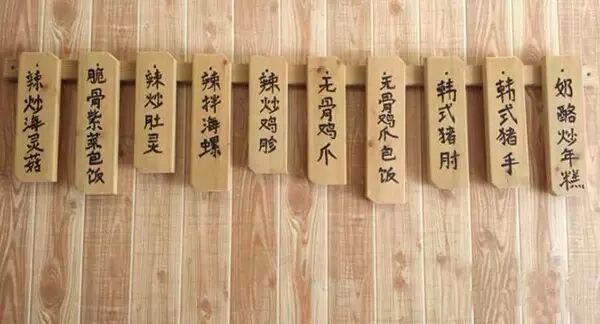 辣炒海灵菇
脆骨紫菜包饭
辣炒肚灵
辣拌海螺
辣炒鸡胗
无骨鸡爪
无骨鸡爪包饭
韩式猪肘
韩式猪手
奶酪炒年糕